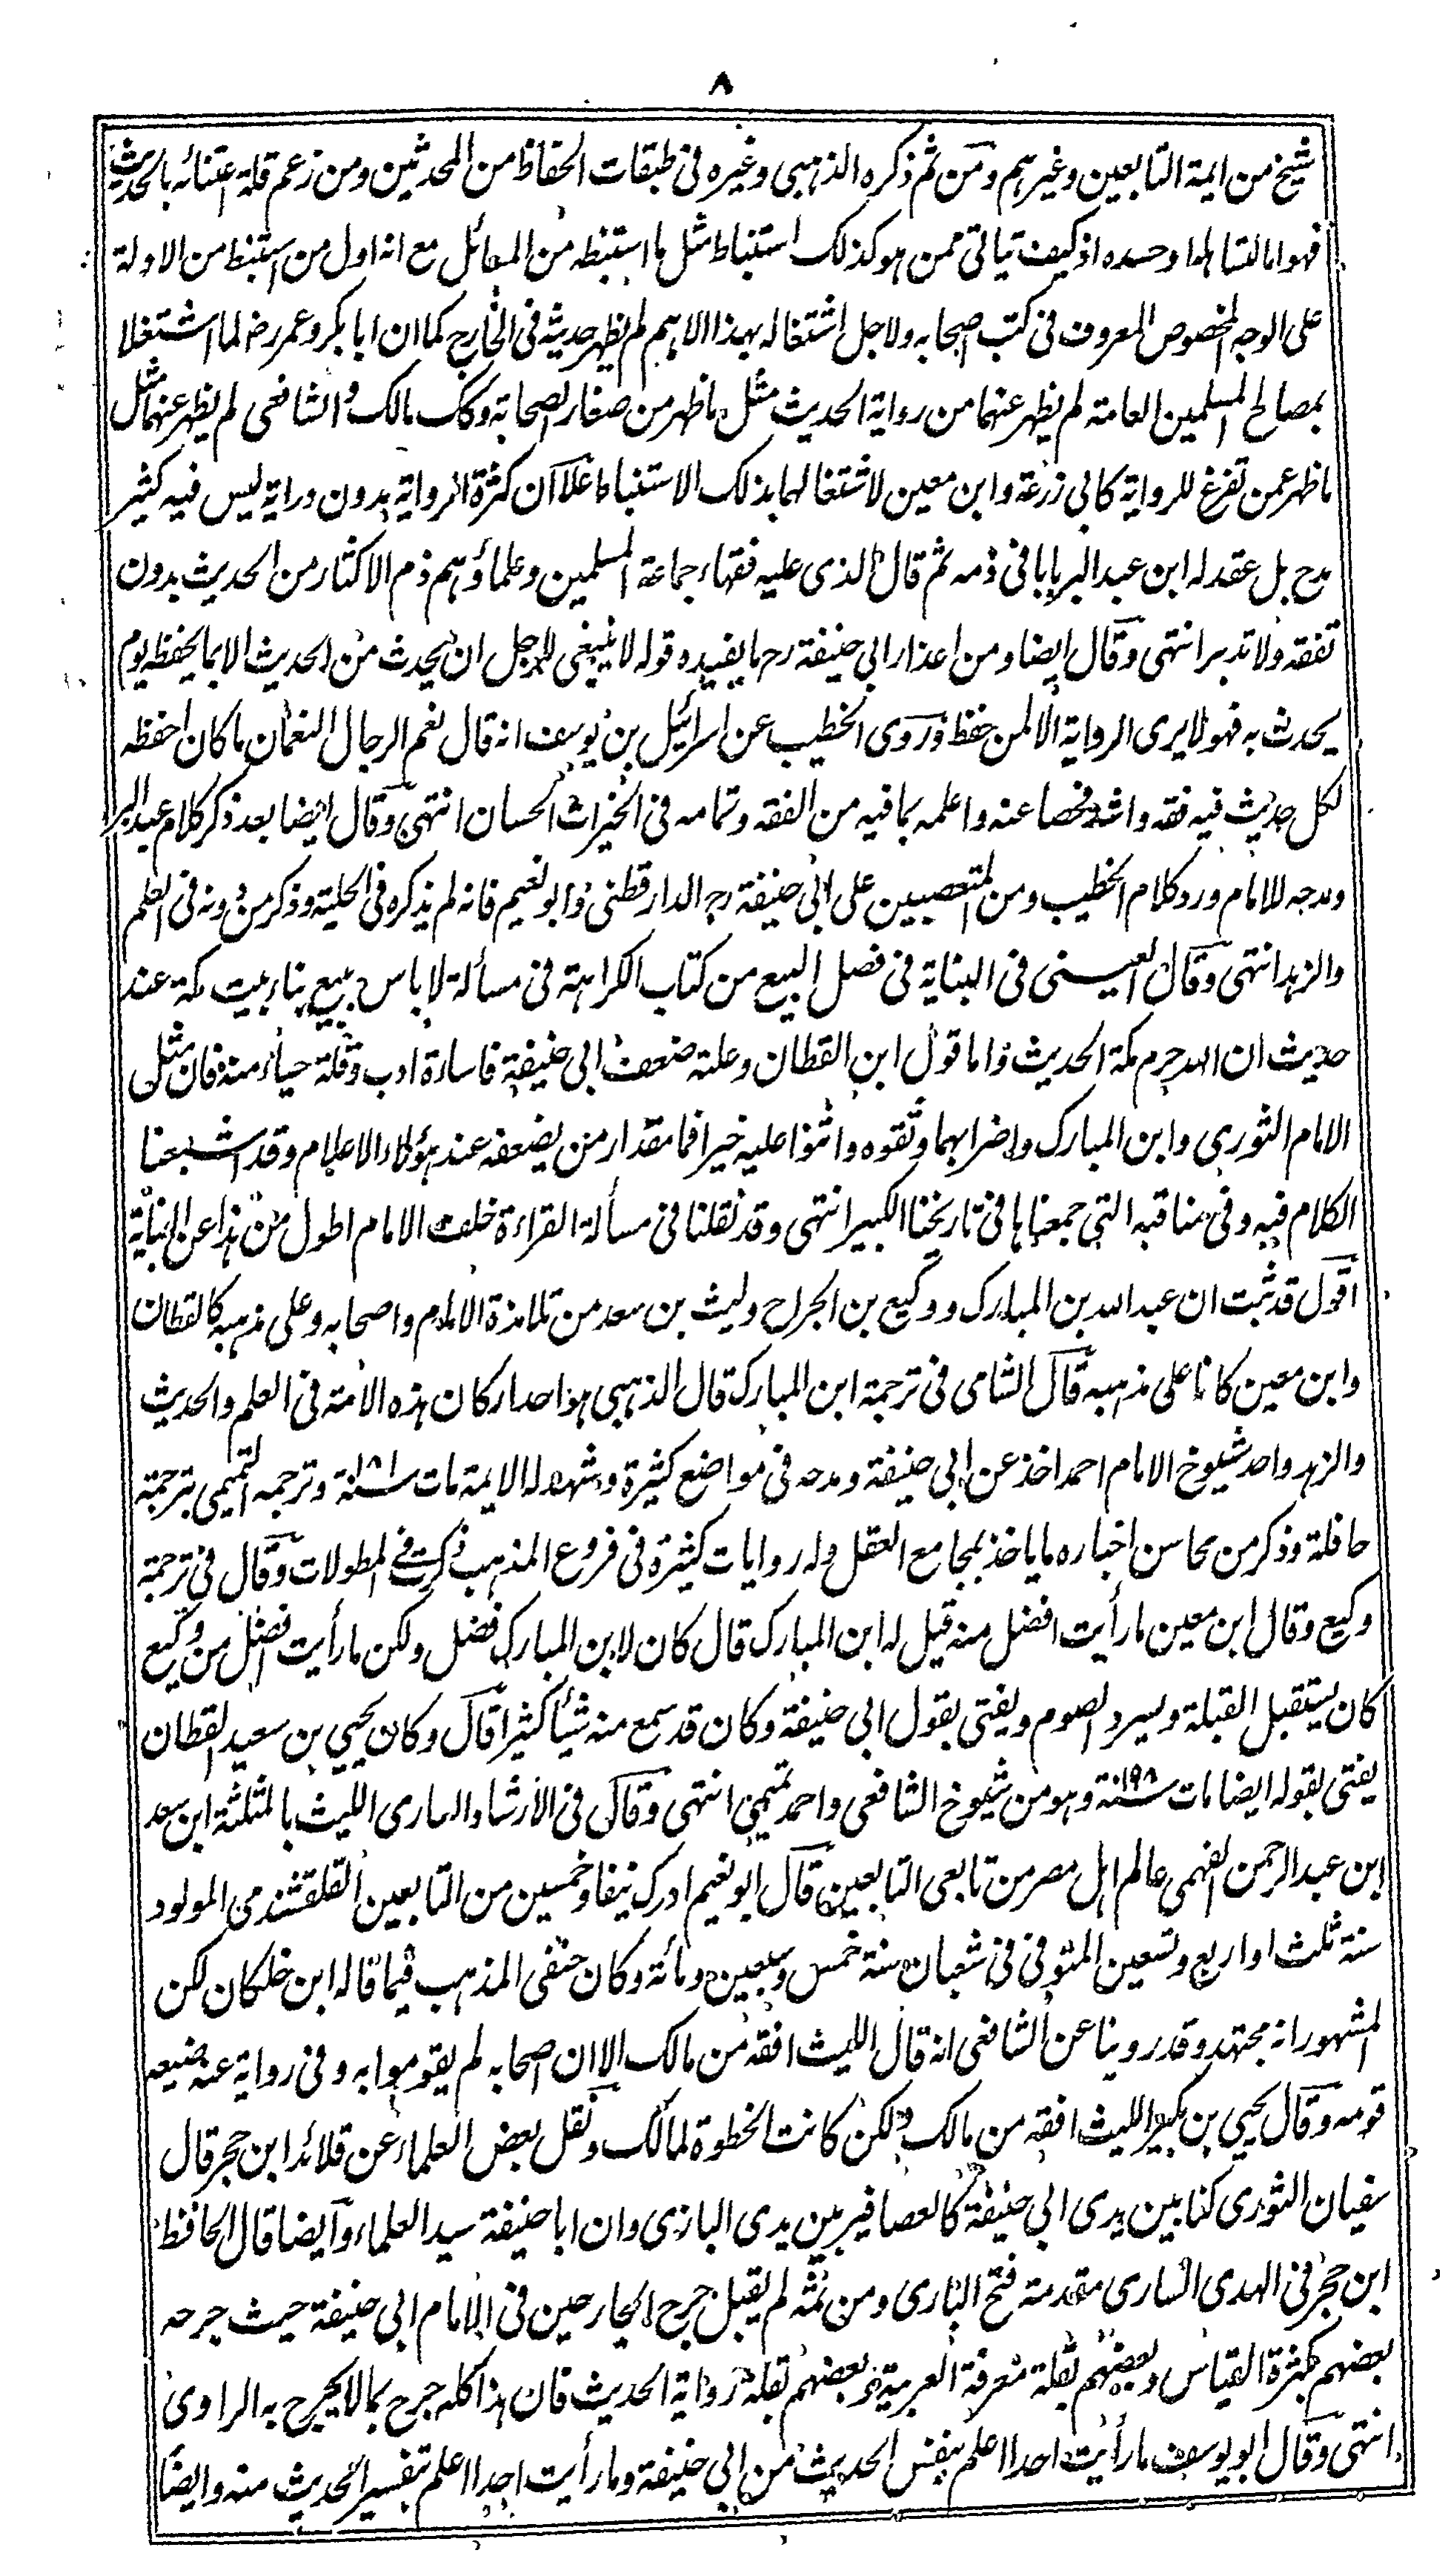 ٨
شيخ من ايمة التابعين وغيرهم ومن ثم ذكره الذهبي وغيره في طبقات الحفاظ من المحدثين ومن زعم قلة اعتنائه بالحديث
فهو اما لتساهله او حسده اذ كيف يتاتى ممن هو كذلك استنباط مثل ما استنبطه من المسائل مع انه اول من استنبط من الادلة
على الوجه المخصوص المعروف في كتب اصحابه ولاجل اشتغاله بهذا الاهم لم يظهر حديثه في الخارج كما ان ابا بكر وعمر رض لما اشتغلا
بمصالح المسلمين العامة لم يظهر عنهما من رواية الحديث مثل ما ظهر من صغار الصحابة وكك مالك والشافعي لم يظهر عنهما مثل
ما ظهر عمن تفرغ للرواية كابي زرعة وابن معين لاشتغالهما بذلك الاستنباط علا ان كثرة الرواية بدون دراية ليس فيه كثير
مدح بل عقد له ابن عبد البر بابا في ذمه ثم قال الذي عليه فقهاء جماعة المسلمين وعلماؤهم ذم الاكثار من الحديث بدون
تفقه ولا تدبر انتهى وقال ايضا ومن اعذار ابي حنيفة رح ما يفيده قوله لا ينبغي للرجل ان يحدث من الحديث الا بما يحفظه يوم
يحدث به فهو لا يرى الرواية الا لمن حفظ وروى الخطيب عن اسرائيل بن يوسف انه قال نعم الرجال النعمان ما كان احفظه
لكل حديث فيه فقه واشد فحصا عنه واعلمه بما فيه من الفقه وتمامه في الخيرات الحسان انتهى وقال ايضا بعد ذكر كلام عبد البر
ومدحه للامام ورد كلام الخطيب ومن المتعصبين على ابي حنيفة رح الدارقطني وابو نعيم فانه لم يذكره في الحلية وذكر من دونه في العلم
والزهد انتهى وقال العيني في البناية في فصل البيع من كتاب الكراهة في مسألة لا باس ببيع بناء بيت مكة عند
حديث ان الله حرم مكة الحديث واما قول ابن القطان وعلته ضعف ابي حنيفة فاساءة ادب وقلة حياء منه فان مثل
الامام الثوري وابن المبارك واضرابهما وثقوه واثنوا عليه خيرا فما مقدار من يضعفه عند هؤلاء الاعلام وقد اشبعنا
الكلام فيه وفي مناقبه التي جمعناها في تاريخنا الكبير انتهى وقد نقلنا في مسألة القراءة خلف الامام اطول من هذا عن البناية
اقول قد ثبت ان عبد الله بن المبارك ووكيع بن الجراح وليث بن سعد من تلامذة الامام واصحابه وعلى مذهبه كالقطان
وابن معين كانا على مذهبه قال الشامي في ترجمة ابن المبارك قال الذهبي هو احد اركان هذه الامة في العلم والحديث
والزهد واحد شيوخ الامام احمد اخذ عن ابي حنيفة ومدحه في مواضع كثيرة وشهد له الايمة مات سنة ١٨١ وترجمه التميمي بترجمة
حافلة وذكر من محاسن اخباره ما ياخذ بمجامع العقل وله روايات كثيرة في فروع المذهب ذكرت في المطولات وقال في ترجمة
وكيع وقال ابن معين ما رأيت افضل منه قيل له ابن المبارك قال كان لابن المبارك فضل ولكن ما رأيت افضل من وكيع
كان يستقبل القبلة ويسرد الصوم ويفتى بقول ابي حنيفة وكان قد سمع منه شيأ كثيرا قال وكان يحيى بن سعيد القطان
يفتى بقوله ايضا مات سنة ١٩٨ وهو من شيوخ الشافعي واحمد تميمي انتهى وقال في الارشاد الساري الليث بالمثلثة ابن سعد
ابن عبد الرحمن الفهمي عالم اهل مصر من تابعي التابعين قال ابو نعيم ادرك نيفا وخمسين من التابعين القلقشندي المولود
سنة ثلث او اربع وتسعين المتوفى في شعبان سنة خمس وسبعين ومائة وكان حنفي المذهب فيما قاله ابن خلكان لكن
المشهور انه مجتهد وقد روينا عن الشافعي انه قال الليث افقه من مالك الا ان اصحابه لم يقوموا به وفي رواية عنه ضيعه
قومه وقال يحيى بن بكير الليث افقه من مالك ولكن كانت الخطوة لمالك ونقل بعض العلماء عن قلائد ابن حجر قال
سفيان الثوري كنا بين يدى ابي حنيفة كالعصافير بين يدى البازي وان ابا حنيفة سيد العلماء وايضا قال الحافظ
ابن حجر في الهدى الساري مقدمة فتح الباري ومن ثمه لم يقبل جرح الجارحين في الامام ابي حنيفة حيث جرحه
بعضهم بكثرة القياس وبعضهم بقلة معرفة العربية وبعضهم بقلة رواية الحديث فان هذا كله جرح بما لا يجرح به الراوي
انتهى وقال ابو يوسف ما رأيت احدا اعلم بنفس الحديث من ابي حنيفة وما رأيت احدا اعلم بتفسير الحديث منه وايضا